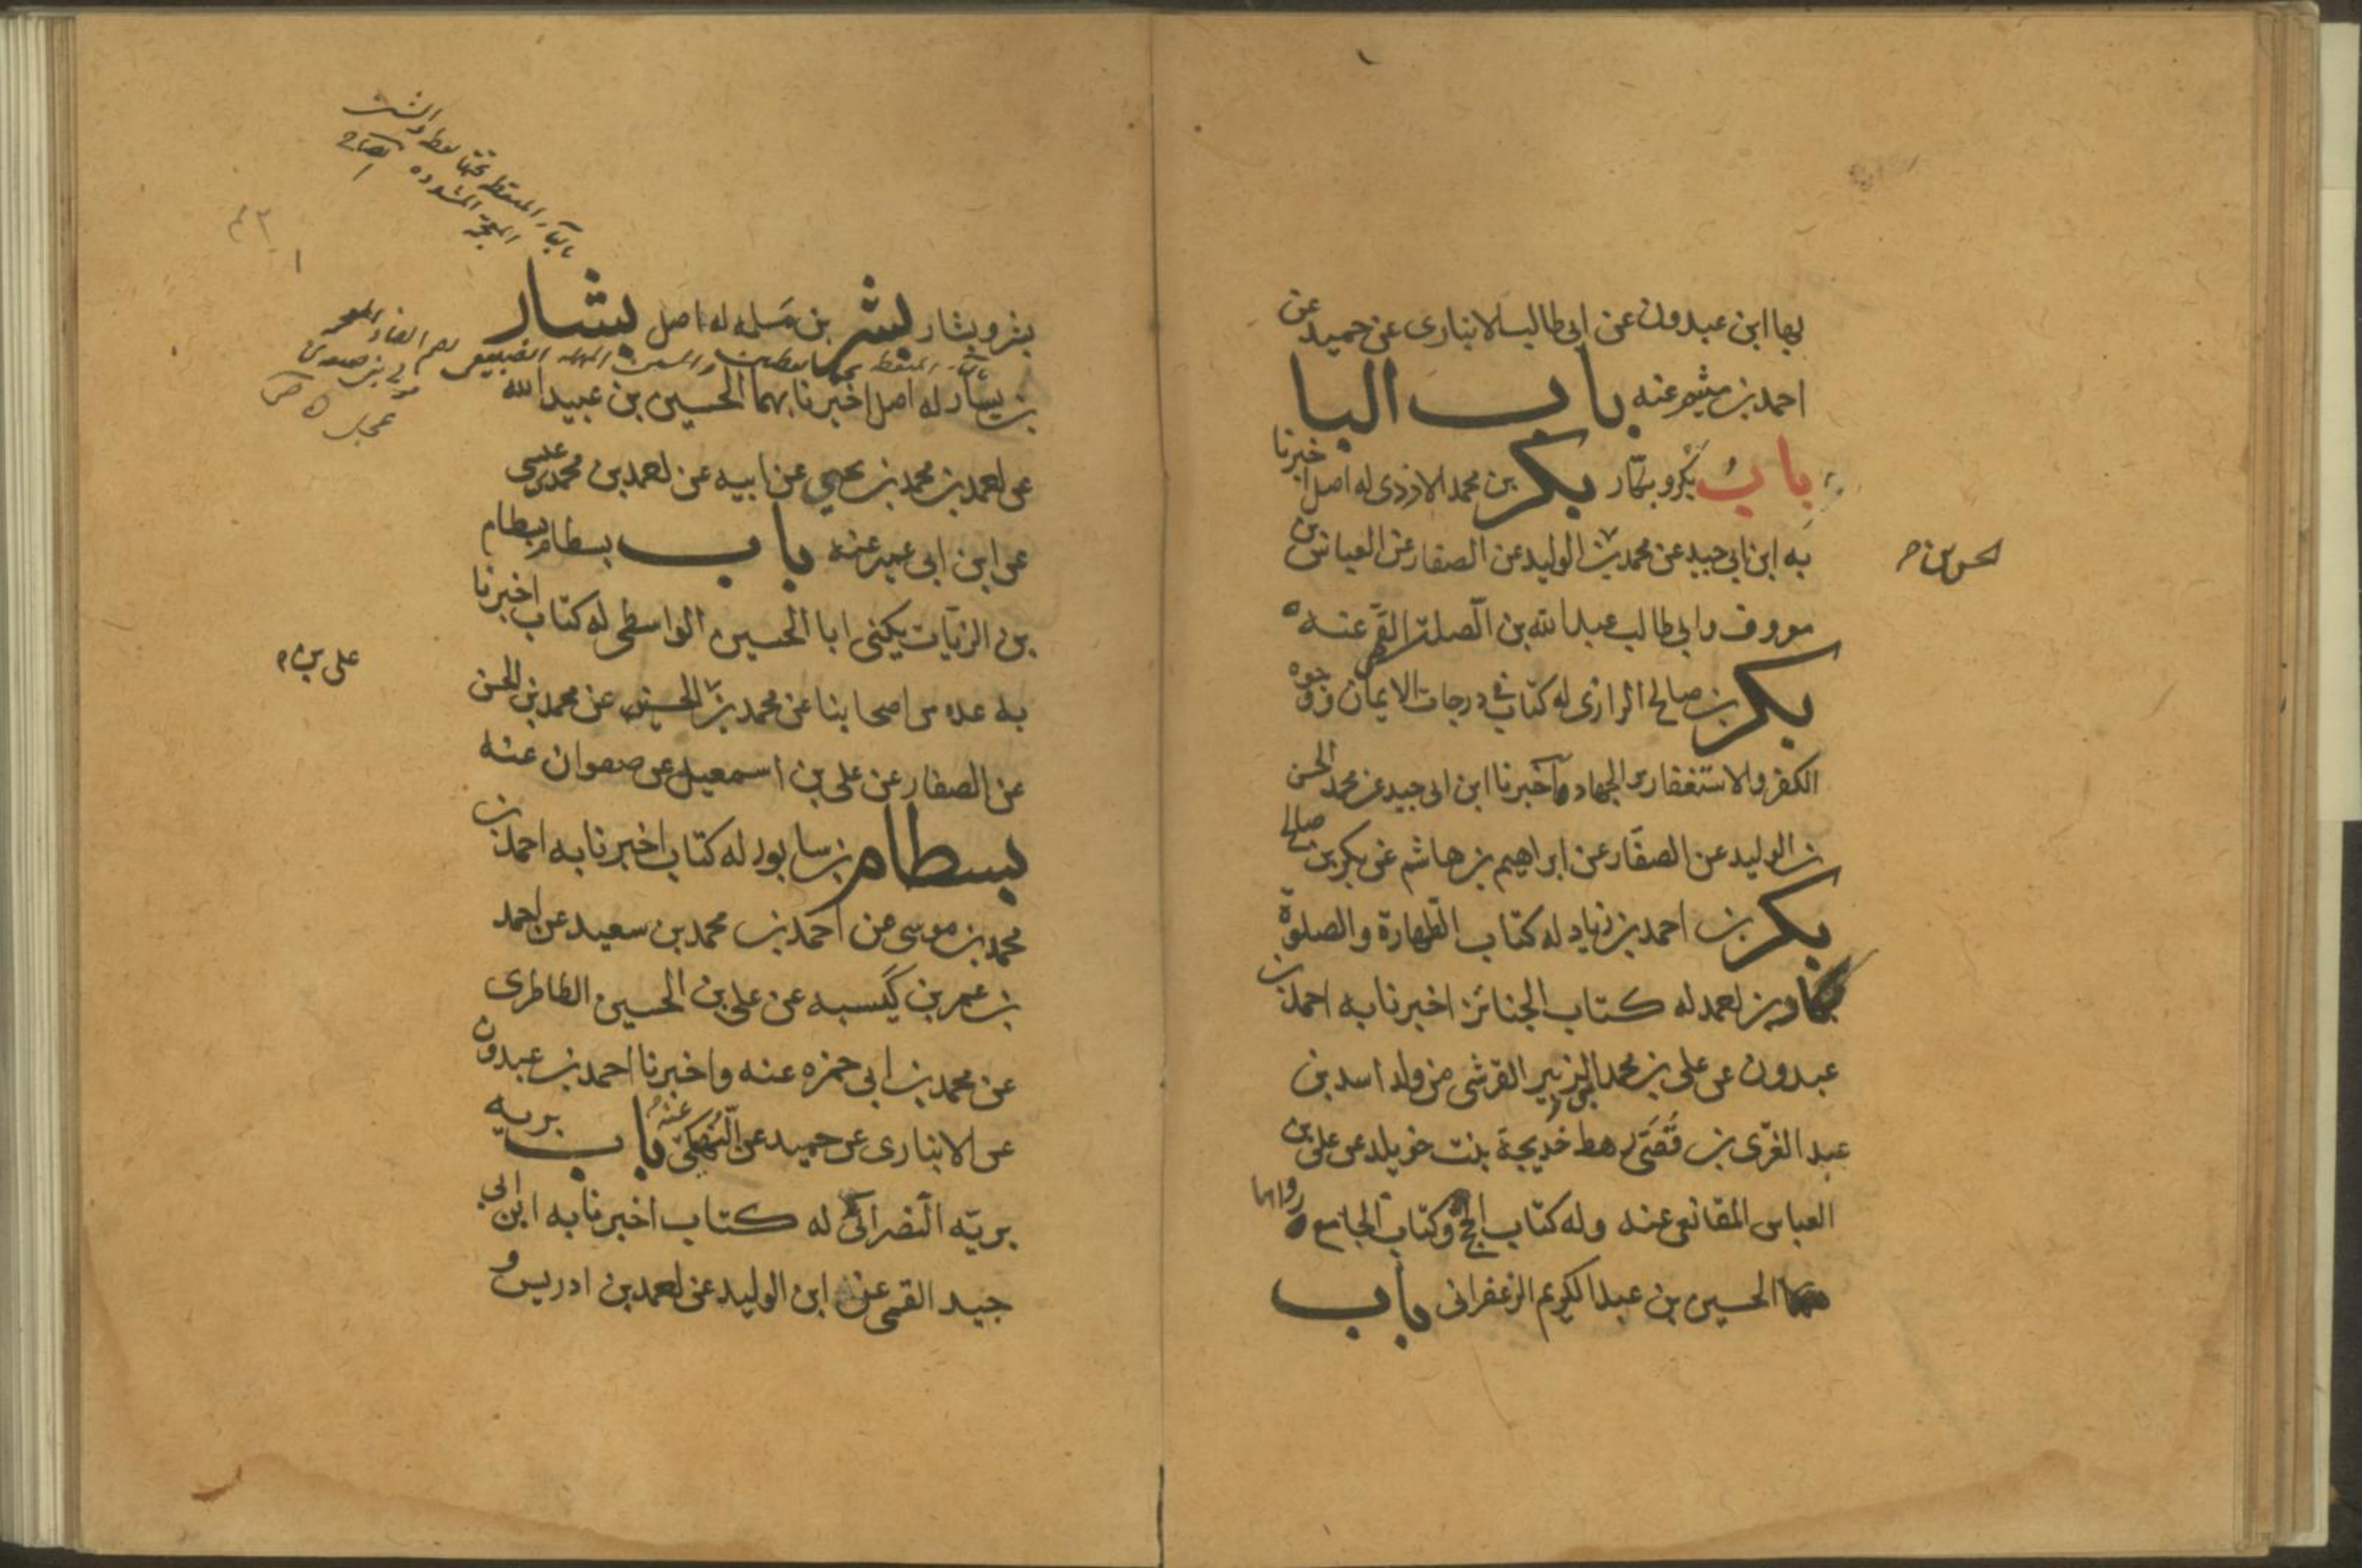 بها ابن عبدون عن ابی طالب الانباری عن حمید عن
احمد بن میثم عنه باب البا
باب بکر و بکّار بکر بن محمد الازدی له اصل اخبرنا
به ابن ابی جید عن محمد بن الولید عن الصفار عن العباس بن
الحسن بن
معروف وابی طالب عبدالله بن الصلت القمی عنه
بکر بن صالح الرازی له کتاب فی درجات الایمان ووجوه
الکفر والاستغفار والجهاد اخبرنا ابن ابی جید عن محمد الحسن
بن الولید عن الصفّار عن ابراهیم بن هاشم عن بکر بن صالح
بکر بن احمد بن زیاد له کتاب الطهارة والصلوة
بکار بن احمد له کتاب الجنائز اخبرنا به احمد بن
عبدون عن علی بن محمد الزبیر القرشی من ولد اسد بن
عبد العزّی بن قُصَیّ رهط خدیجة بنت خویلد عن علی بن
العباس المقانعی عنه وله کتاب الحج وکتاب الجامع رواهما
الحسین بن عبدالکریم الزعفرانی باب
بالباء المنقط تحتها نقطه والشین
المعجمة المشدده ایضاح
بشر وبشار بشر بن مسلمه له اصل بشار
بن یسار له اصل اخبرنا بهما الحسین بن عبیدالله
عن احمد بن محمد بن یحیی عن ابیه عن احمد بن محمد بن عیسی
عن ابن ابی عمیر عنه باب بسطام بسطام
بن الزیات یکنی ابا الحسین الواسطی له کتاب اخبرنا
به عده من اصحابنا عن محمد بن الحسین عن محمد بن الحسن
علی بن
عن الصفار عن علی بن اسمعیل عن صفوان عنه
بسطام بن سابور له کتاب اخبرنا به احمد بن
محمد بن موسی عن احمد بن محمد بن سعید عن احمد
بن عمر بن کَیسبه عن علی بن الحسین الطاطری
عن محمد بن ابی حمزه عنه واخبرنا احمد بن عبدون
عن الانباری عن حمید عن النهیکی عنه باب بریه
بریّه النصرانی له کتاب اخبرنا به ابن ابی
جید القمی عن ابن الولید عن احمد بن ادریس و